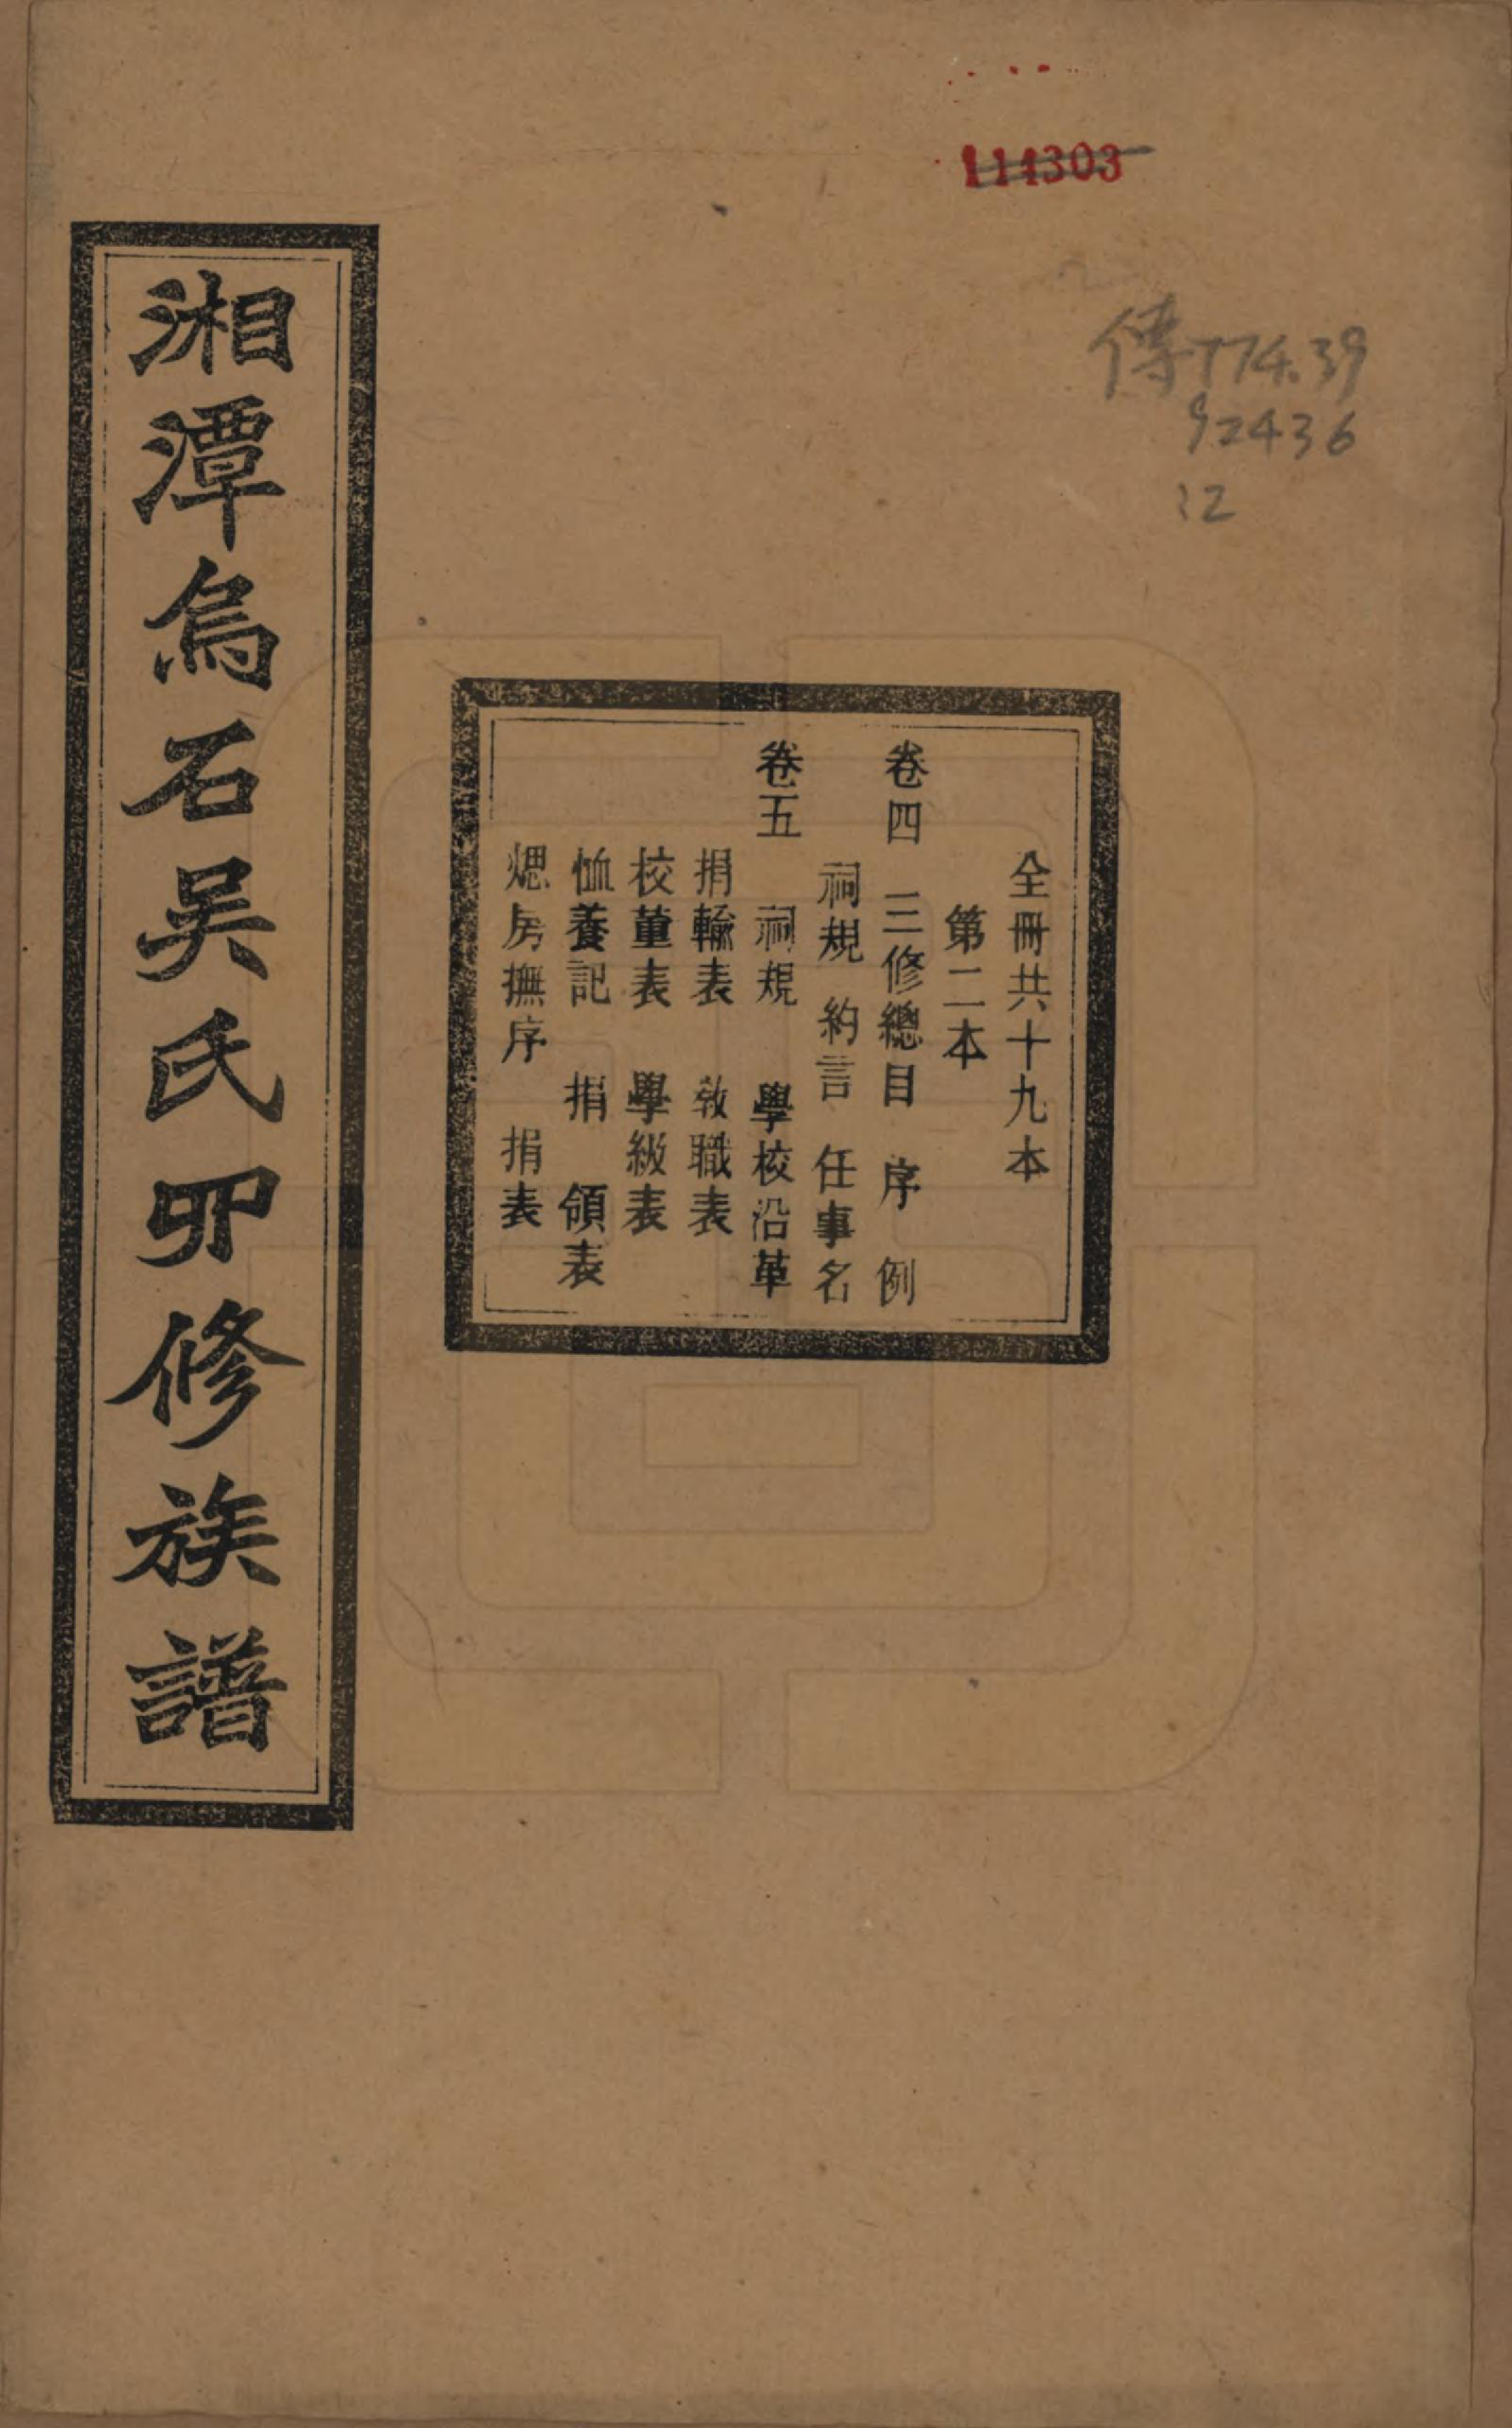 114303
傳774.39
92436
12
全冊共十九本
第二本
卷四 三修總目 序 例
祠規 約言 任事名
卷五 祠規 學校沿革
捐輸表 敎職表
校董表 學級表
恤養記 捐 領表
煾房撫序 捐表
湘潭烏石吴氏四修族譜